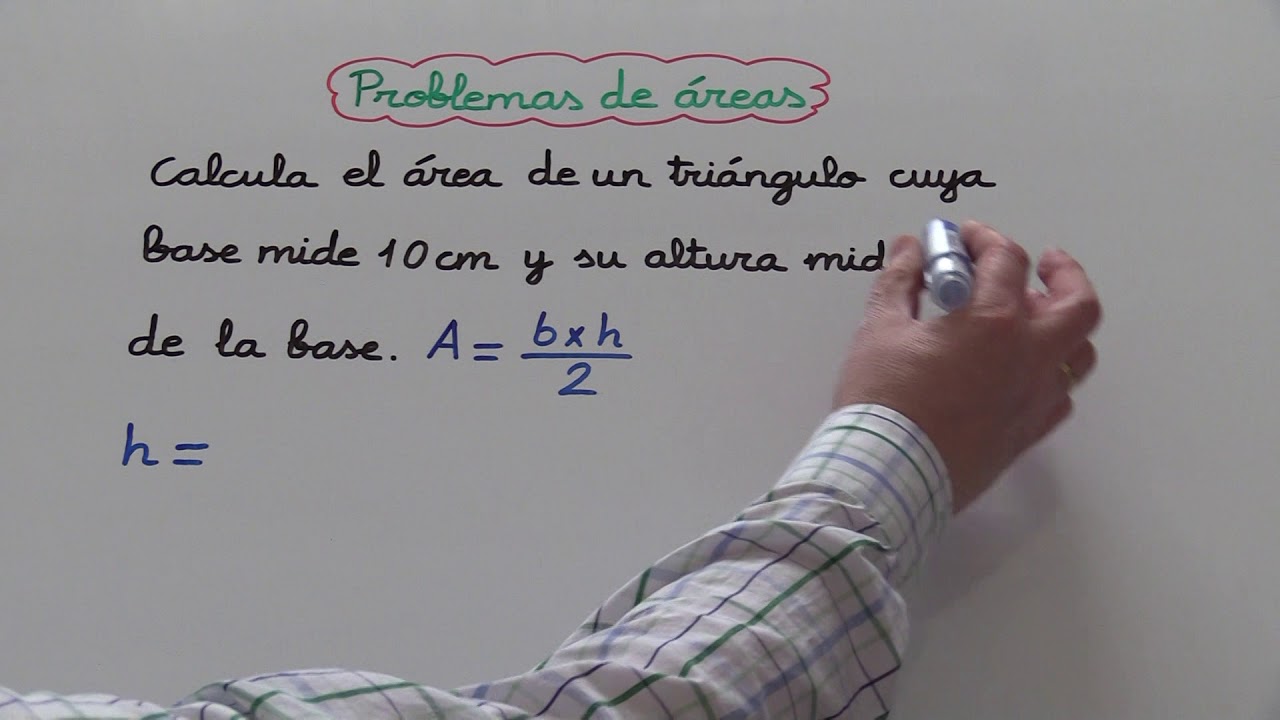 Problemas de áreas
Calcula el área de un triángulo cuya
base mide 10 cm y su altura mid
de la base. A = b x h / 2
h =